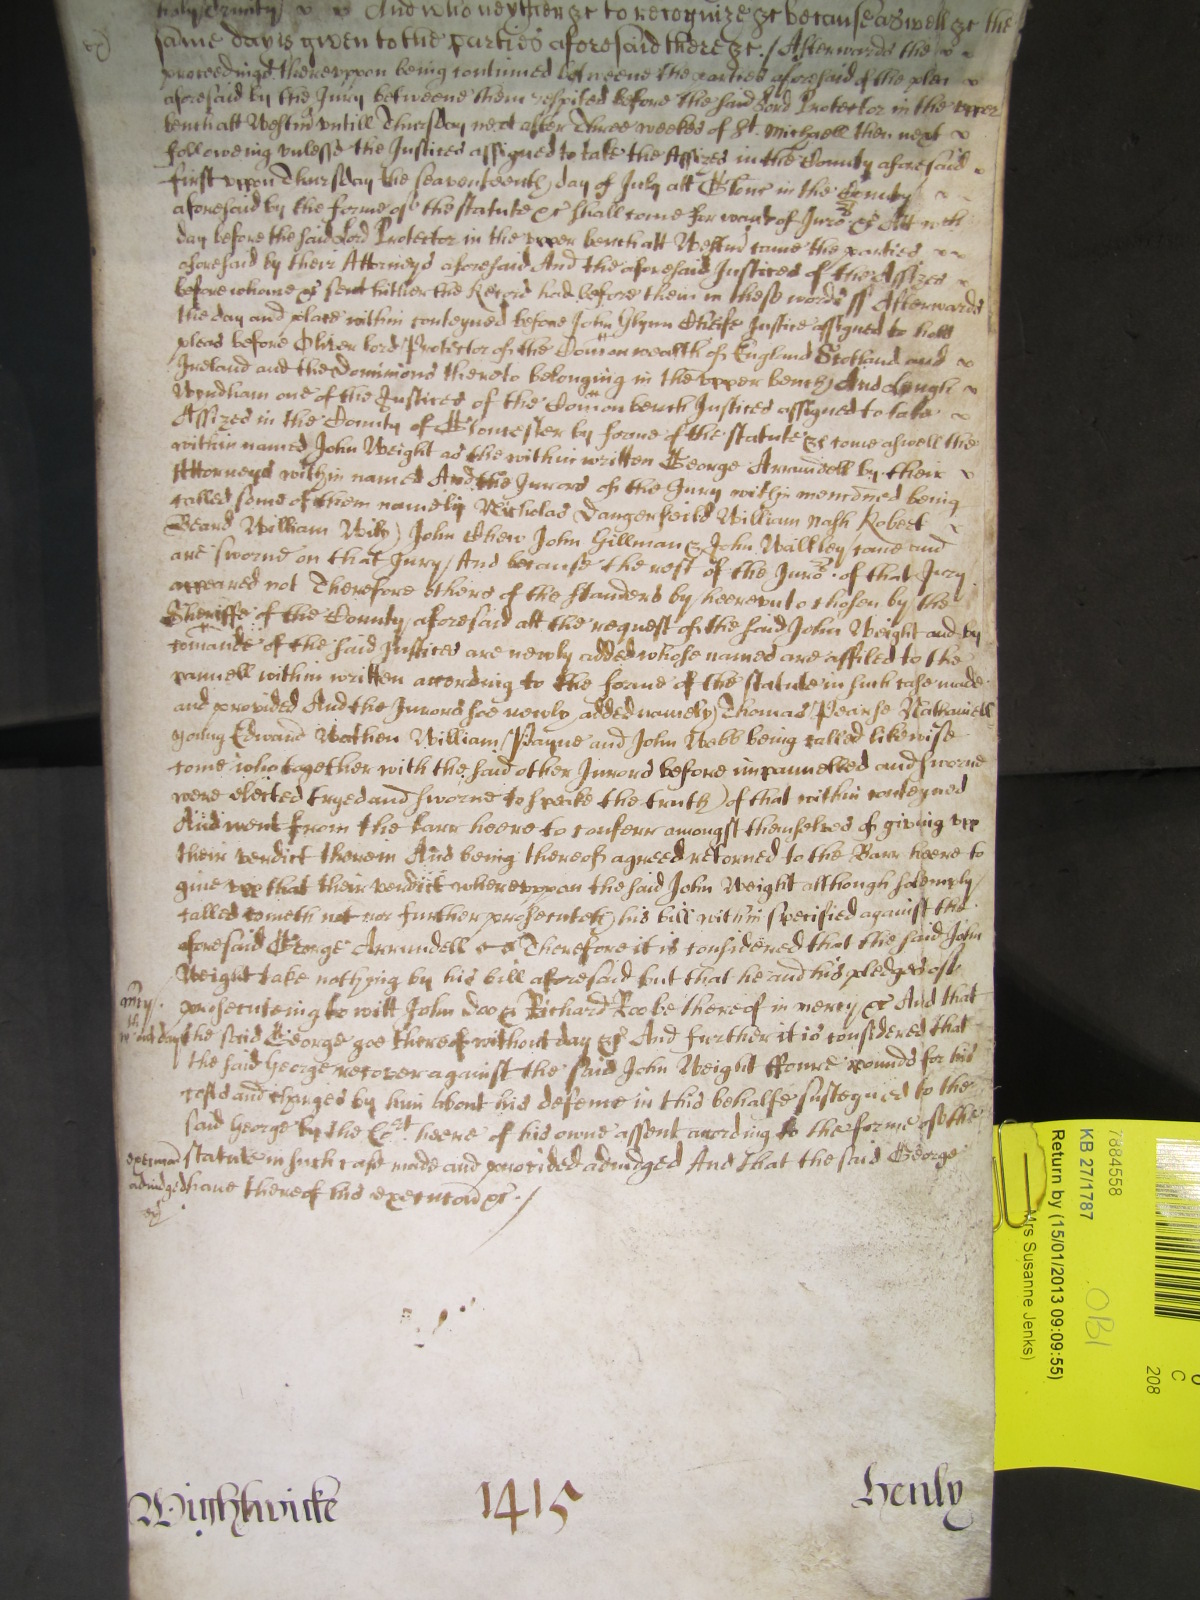 holy Trinity And who neyther &c to recognize &c because aswell &c the
same day is given to the parties aforesaid there &c./ Afterwards the
proceedings thereuppon being continued betweene the parties aforesaid of the plea
aforesaid by the Jury betweene them respited before the said Lord Protector in the upper
bench att Westmr untill Thursday next after Three weekes of St. Michaell then next
followeing unlesse the Justices assigned to take the Assizes in the County aforesaid
first uppon Thursday the seaventeenth day of July att Glouc in the County
aforesaid by the forme of the statute &c shall come for want of Jurors &c Att wch
day before the said Lord Protector in the upper bench att Westmr came the parties
aforesaid by their Attorneys aforesaid And the aforesaid Justices of the Assizes
before whome &c sent hither the Record had before them in these words ss Afterwards
the day and place within conteyned before John Glynn Cheife Justice assigned to hold
pleas before Oliver lord Protector of the Comon wealth of England Scotland and
Ireland and the Dominions thereto belonging in the upper bench And Hugh
Wyndham one of the Justices of the Comon bench Justices assigned to take
Assizes in the County of Gloucester by forme of the statute &c come aswell the
within named John Weight as the within written George Arrundell by their
Attorneys within named And the Jurors of the Jury within menconed being
called some of them namely Nicholas Dangerfeild William Nash Robert
Beard William John Chew John Gillman & John Wallley came and
are sworne on that Jury And because the rest of the Juros of that Jury
appeared not Therefore others of the standers by hereunto chosen by the
Sheriffe of the County aforesaid att the request of the said John Weight and by
comande of the said Justices are newly added whose names are affiled to the
pannell within written according to the forme of the statute in such case made
and provided And the Jurors soe newly added namely Thomas Pearse Nathaniell
Young Edward Wathen William Payne and John Webb being called likewise
come who together with the said other Jurors before impannelled and sworne
were elected tryed and sworne to speake the truth of that within conteyned
And went from the barr heere to conferr amongst themselves of giving upp
their verdict therein And being thereof agreed retorned to the Barr heere to
give upp that their verdict whereuppon the said John Weight although solemply
called cometh not nor further prosecuteth his bill within specified against the
aforesaid George Arrundell Therefore it is considered that the said John
Weight take nothing by his bill aforesaid but that he and his pledges of
mcy. prosecuteing to witt John Doo & Richard Roo be thereof in mercy &c And that
wthout day the said George goe thereof without day &c And further it is considered that
the said George recover against the said John Weight ffoure pounds for his
costs and charges by him about his defence in this behalfe susteyned to the
said George by the Court heere of his owne assent according to the forme of the
execucon statute in such case made and provided adiudged And that the said George
adiudged have thereof his execucon &c./
Wightwicke 1415 Henly
7884558
KB 27/1787
Return by (15/01/2013 09:09:55)
Mrs Susanne Jenks)
OB1
C
208